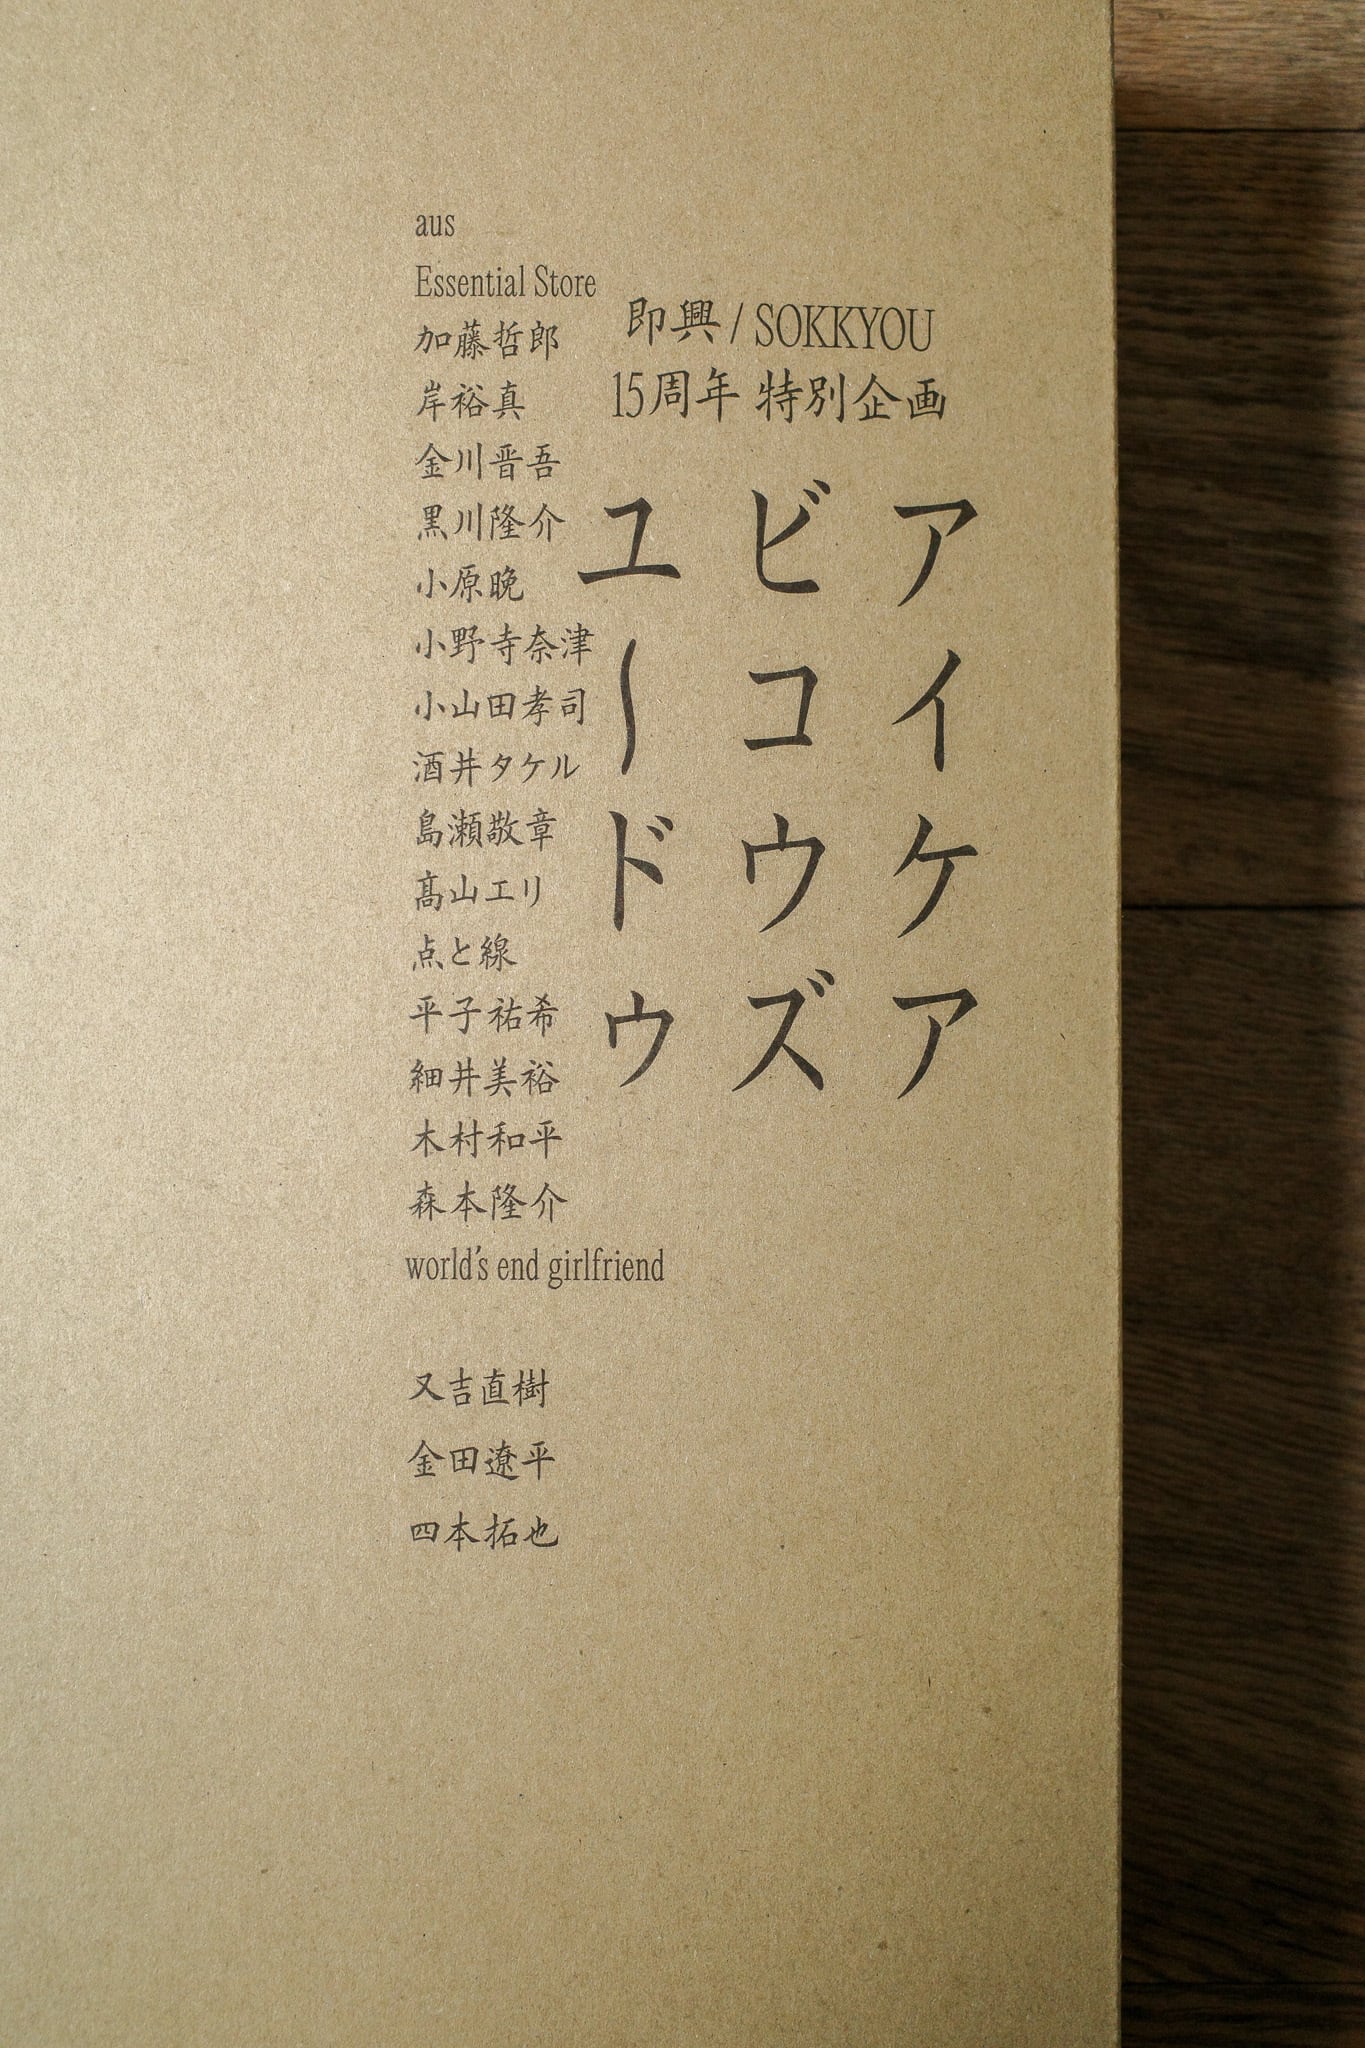 即興 / SOKKYOU
15周年 特別企画
アイケア
ビコウズ
ユードゥ
aus
Essential Store
加藤哲郎
岸裕真
金川晋吾
黒川隆介
小原晩
小野寺奈津
小山田孝司
酒井タケル
島瀬敬章
髙山エリ
点と線
平子祐希
細井美裕
木村和平
森本隆介
world's end girlfriend
又吉直樹
金田遼平
四本拓也